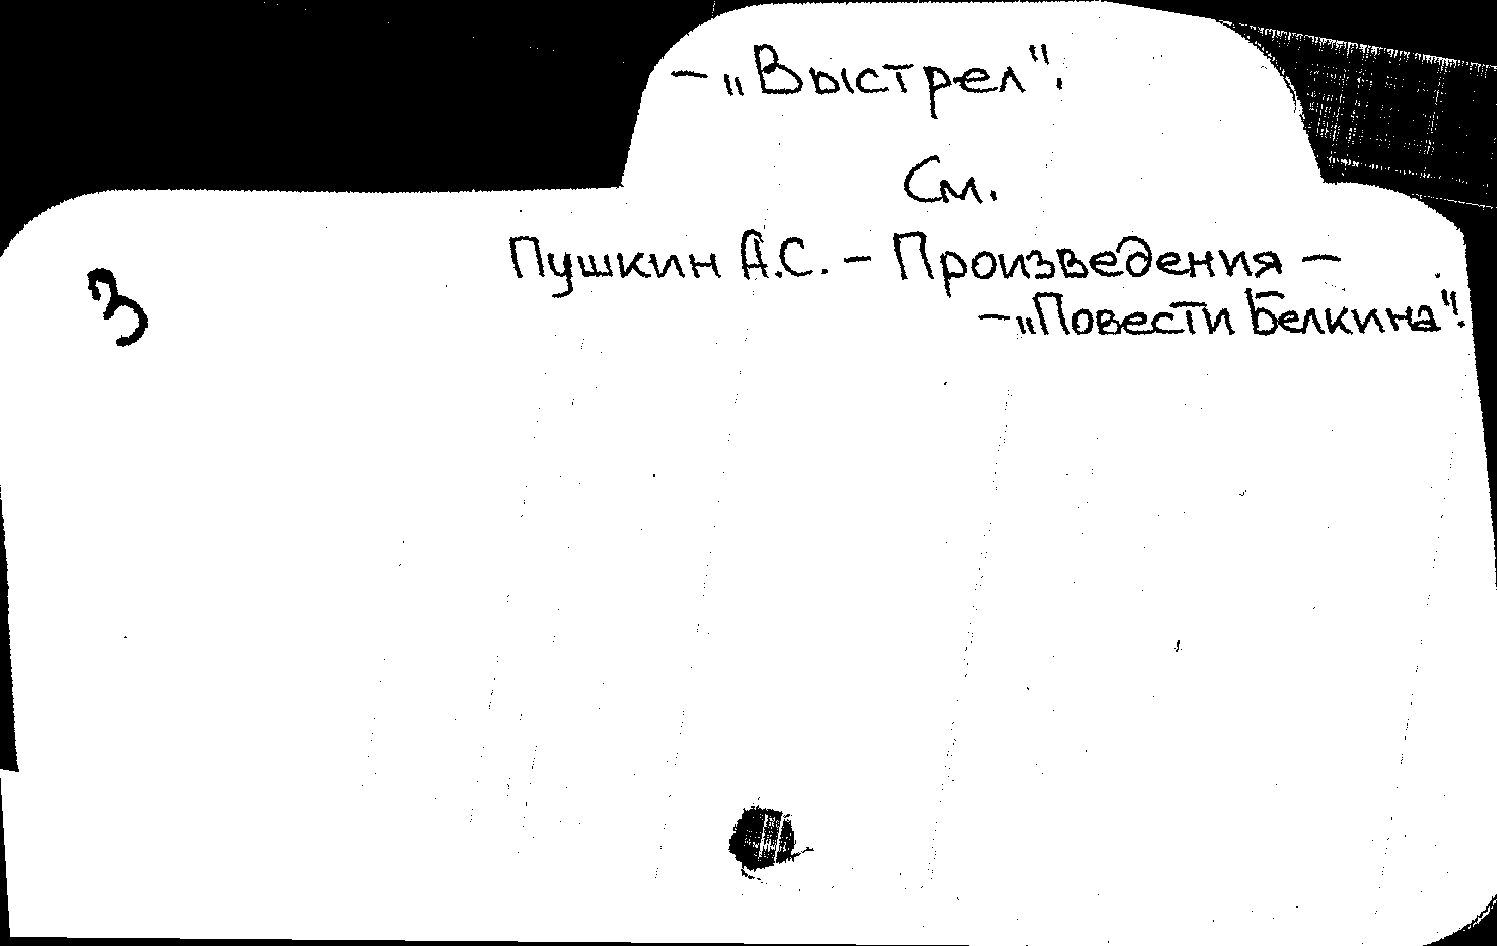 – „Выстрел".
См.
Пушкин А.С. – Произведения –
– „Повести Белкина".
3